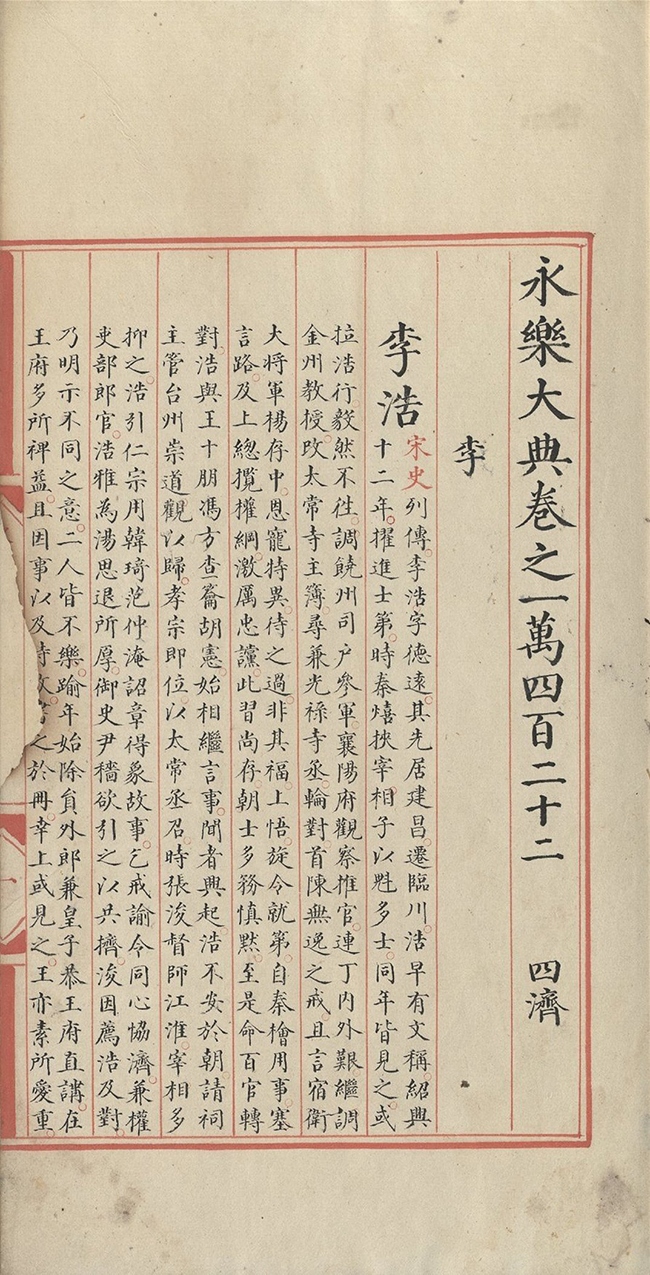 永樂大典卷之一萬四百二十二 四濟
李
李浩 宋史列傳。李浩字德遠。其先居建昌。遷臨川。浩早有文稱。紹興
十二年。擢進士第。時秦熺挾宰相子以魁多士。同年皆見之。或
拉浩行。毅然不徃。調饒州司户參軍。襄陽府觀察推官。連丁内外艱。繼調
金州教授。改太常寺主簿。尋兼光祿寺丞。輪對。首陳無逸之戒。且言宿衛
大將軍楊存中。恩寵特異。待之過。非其福。上悟。旋令就第。自秦檜用事。塞
言路。及上總攬權綱。激厲忠讜。此習尚存。朝士多務慎默。至是命百官轉
對。浩與王十朋馮方查籥胡憲。始相繼言事。聞者興起。浩不安於朝。請祠
主管台州崇道觀以歸。孝宗即位。以太常丞召。時張浚督師江淮。宰相多
抑之。浩引仁宗用韓琦范仲淹。詔章得象故事。乞戒諭令同心協濟。兼權
吏部郎官。浩雅為湯思退所厚。御史尹穡欲引之以共擠浚。因薦浩。及對。
乃明示不同之意。二人皆不樂。踰年始除員外郎。兼皇子恭王府直講。在
王府多所裨益。且因事以及之於冊。幸上或見之。王亦素所愛重。